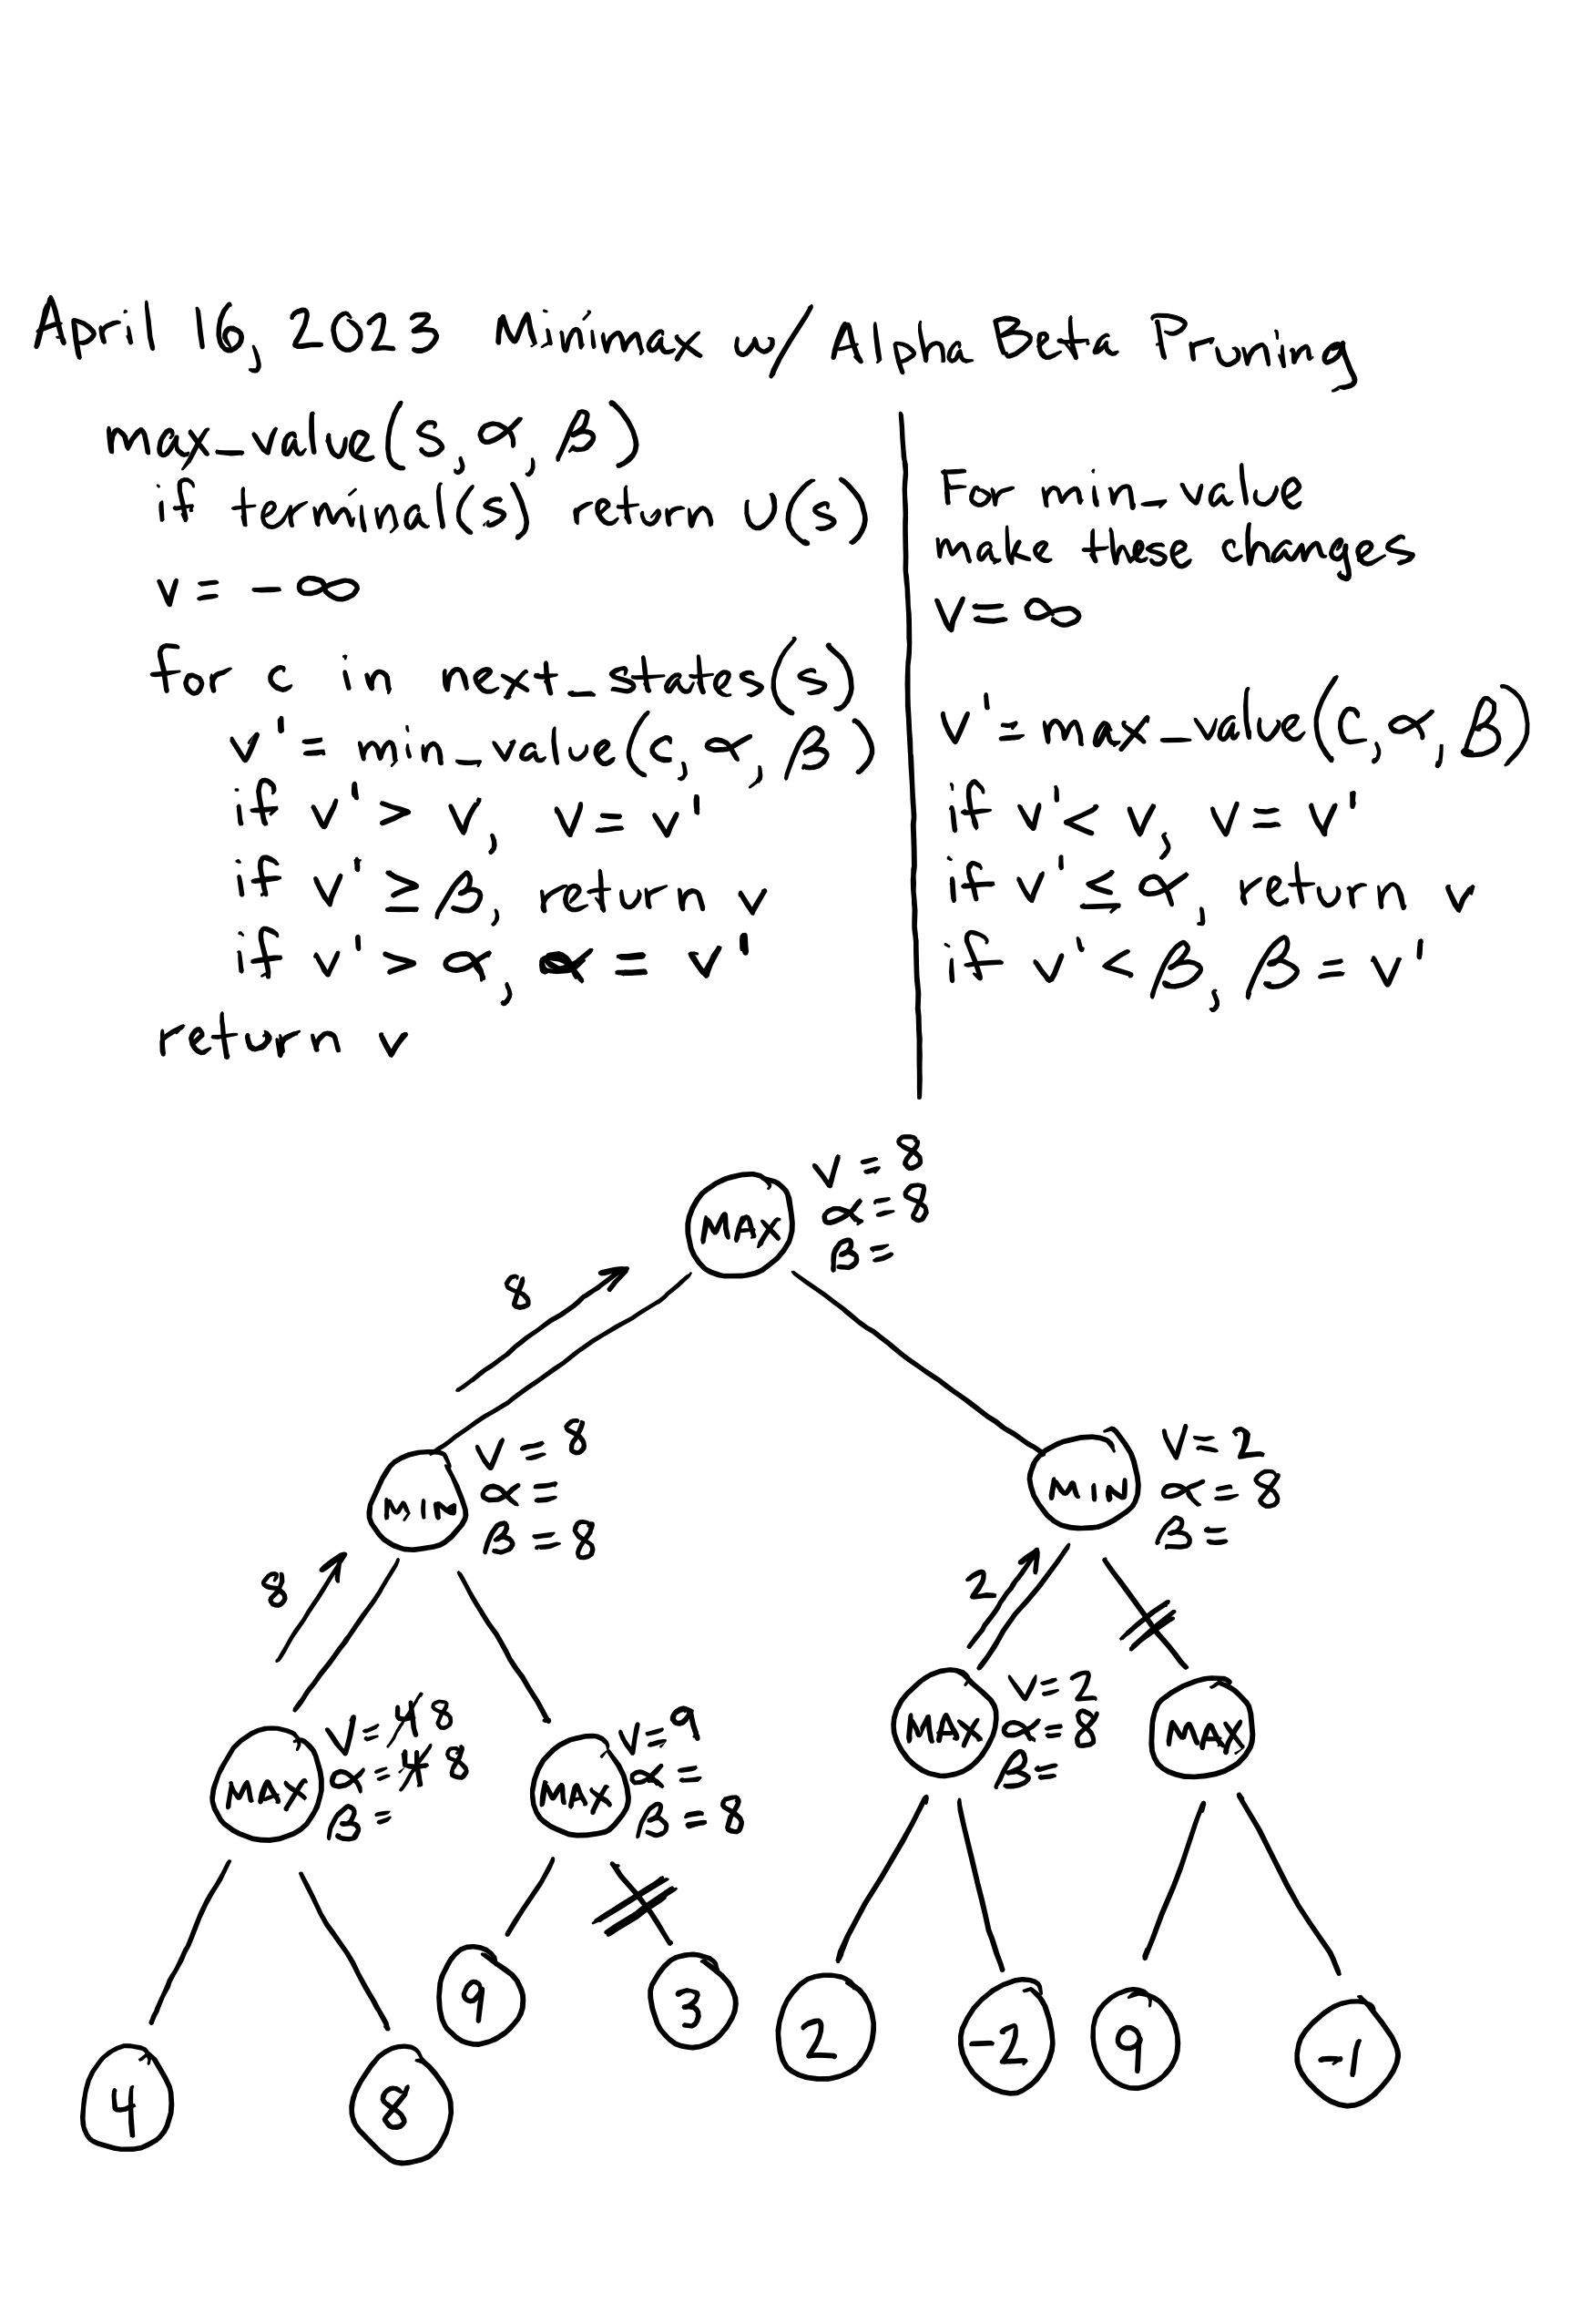 April 16, 2023 Minimax w/ Alpha Beta Pruning
max_value(s, α, β)
if terminal(s) return U(s)
v = -∞
for c in next_states(s)
v' = min_value(c, α, β)
if v' > v, v = v'
if v' ≥ β, return v
if v' > α, α = v'
return v
For min_value
make these changes
v = ∞
v' = max_value(c, α, β)
if v' < v, v = v'
if v' ≤ α, return v
if v' < β, β = v'
MAX
v = 8
α = 8
β =
8
MIN
v = 8
α =
β = 8
MIN
v = 2
α = 8
β =
8
2
MAX
v = 4 8
α = 4 8
β =
MAX
v = 9
α =
β = 8
MAX
v = 2
α = 8
β =
MAX
4
8
9
3
2
-2
9
-1